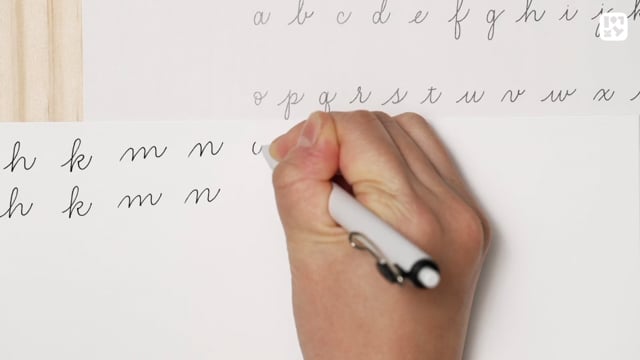 a b c d e f g h i j k
o p q r s t u v w x
h k m n
h k m n